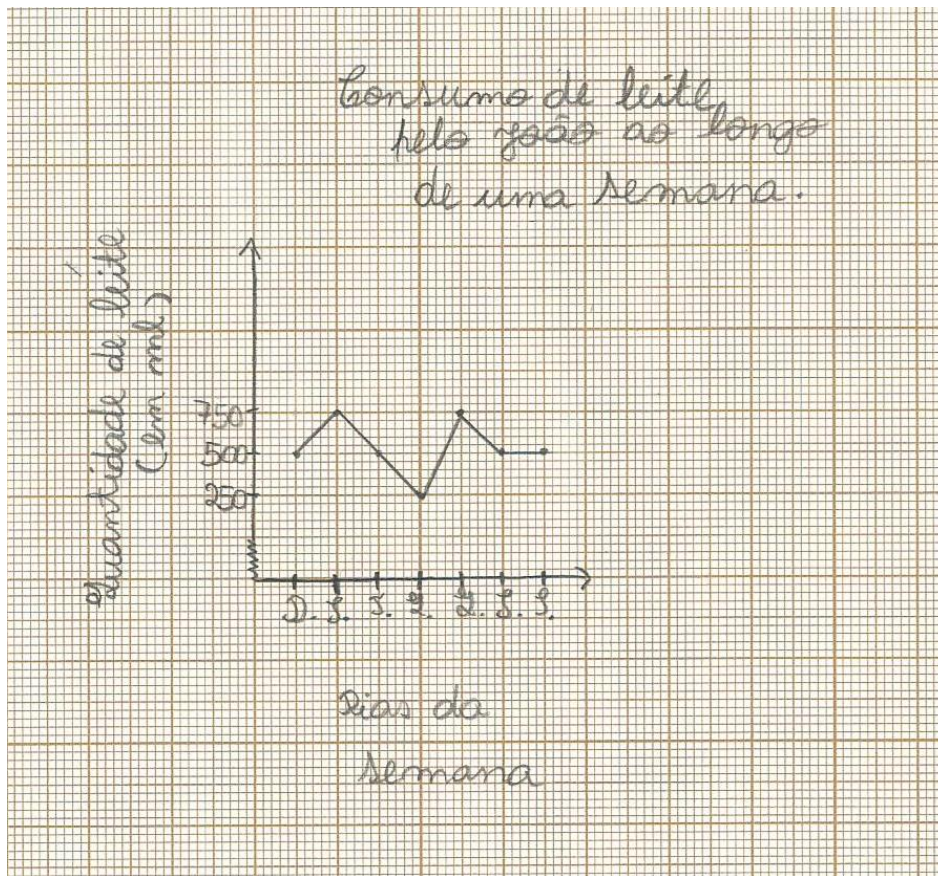 Consumo de leite
pelo João ao longo
de uma semana.
Quantidade de leite
(em ml)
750
500
250
D. S. T. Q. Q. S. S.
Dias da
semana